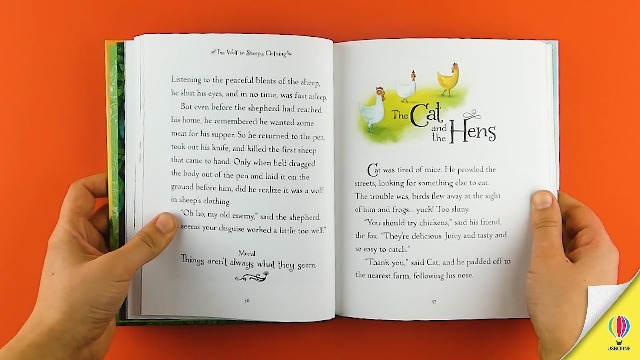 The Wolf in Sheep's Clothing
Listening to the peaceful bleats of the sheep,
he shut his eyes, and in no time, was fast asleep.
But even before the shepherd had reached
his home, he remembered he wanted some
meat for his supper. So he returned to the pen,
took out his knife, and killed the first sheep
that came to hand. Only when he'd dragged
the body out of the pen and laid it on the
ground before him, did he realize it was a wolf
in sheep's clothing.
"Oh ho, my old enemy," said the shepherd.
seems your disguise worked a little too well."
Moral
Things aren't always what they seem.
36
The Cat
and the Hens
Cat was tired of mice. He prowled the
streets, looking for something else to eat.
The trouble was, birds flew away at the sight
of him and frogs... yuck! Too slimy.
"You should try chickens," said his friend,
the fox. "They're delicious. Juicy and tasty and
so easy to catch."
"Thank you," said Cat, and he padded off to
the nearest farm, following his nose.
37
USBORNE